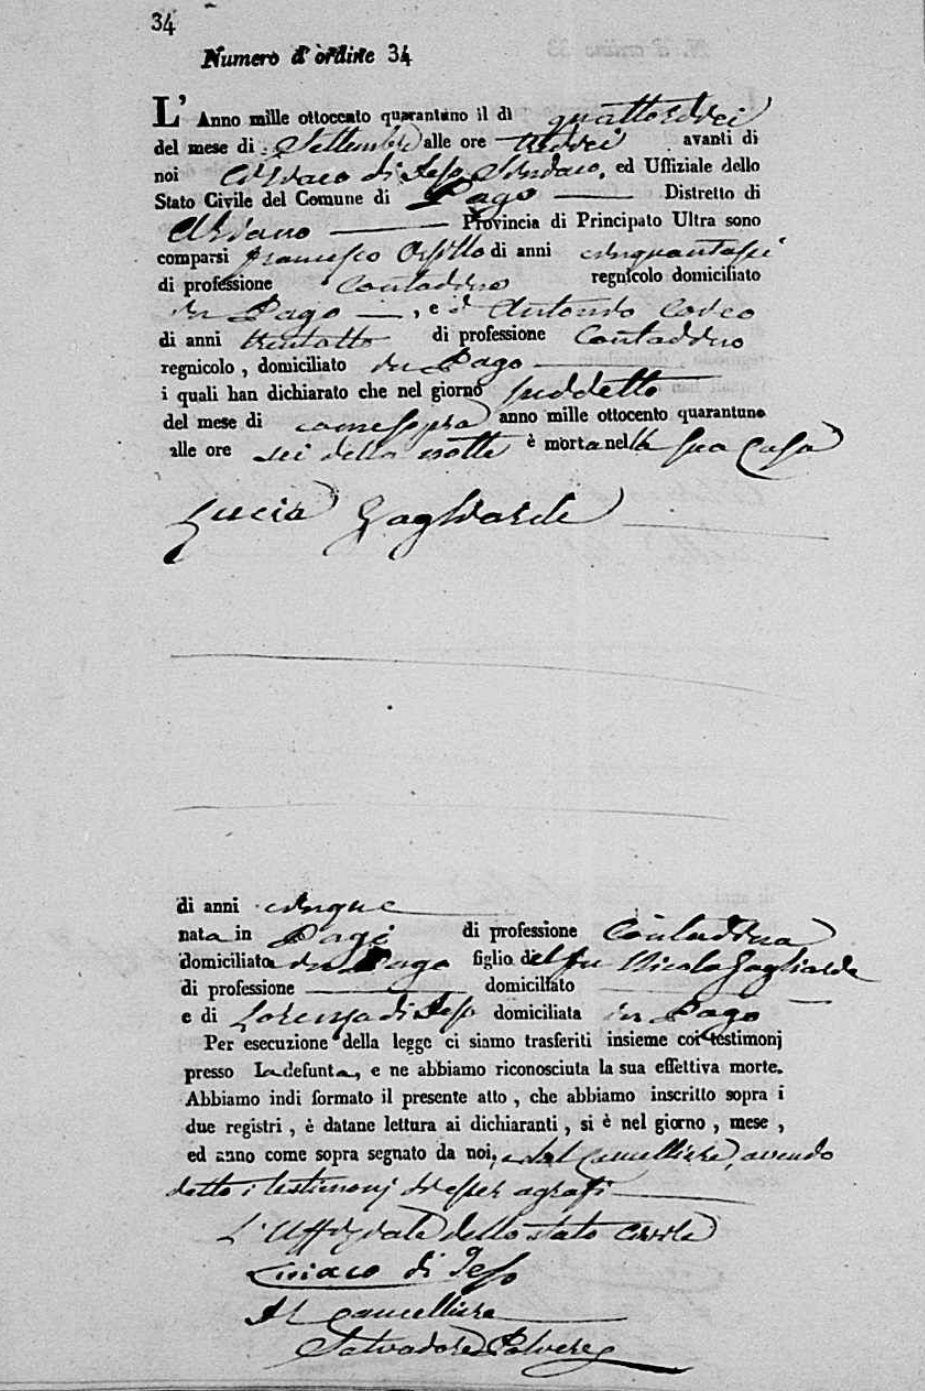 34
Numero d'ordine 34
L' Anno mille ottocento quarantuno il dì quattordici
del mese di Settembre alle ore tredici avanti di
noi Ciriaco di Teso Sindaco, ed Uffiziale dello
Stato Civile del Comune di Pago Distretto di
Ariano Provincia di Principato Ultra sono
comparsi Francesco Orsillo di anni cinquantasei
di professione Contadino regnicolo domiciliato
in Pago, e d Antonio Codeo
di anni trentotto di professione Contadino
regnicolo, domiciliato in Pago
i quali han dichiarato che nel giorno suddetto
del mese di come sopra anno mille ottocento quarantuno
alle ore sei della notte è morta nella sua Casa
Lucia Gagliarde
di anni cinque
nata in Pago di professione Contadina
domiciliata in Pago figlio del fu Nicola Gagliarde
di professione domiciliato
e di Lorenza di Teso domiciliata in Pago
Per esecuzione della legge ci siamo trasferiti insieme coi testimonj
presso La defunta, e ne abbiamo riconosciuta la sua effettiva morte.
Abbiamo indi formato il presente atto, che abbiamo inscritto sopra i
due registri, è datane lettura ai dichiaranti, si è nel giorno, mese,
ed anno come sopra segnato da noi, e dal Cancelliere, avendo
detto i testimonj di esser agrafi
L'Uffiziale dello stato Civile
Ciriaco di Teso
Il Cancelliere
Salvadore Polvere